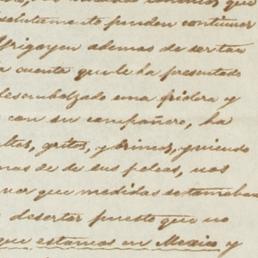 que
absolutamente pueden continuar
Yrigoyen ademas de ser tan
cuenta que le ha presentado
desembolzado una fridera y
con su compañero, ha
gritos, y brincos,
mas de de sus peleas, nos
ver que medidas estamabas
desertor puesto que no
que estamos en Mexico y